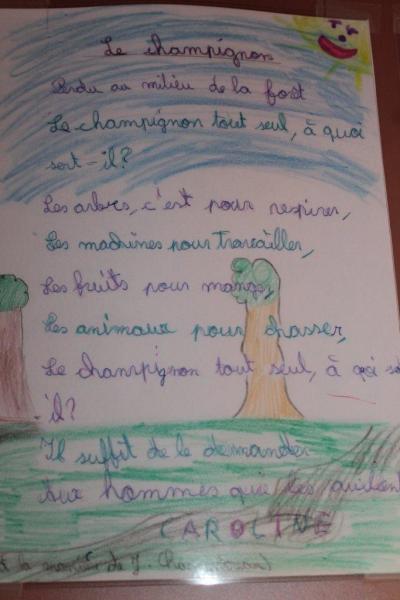 Le champignon
Perdu au milieu de la forêt
Le champignon tout seul, à quoi
sert-il?
Les arbres, c'est pour respirer,
Les machines pour travailler,
Les fruits pour manger,
Les animaux pour chasser,
Le champignon tout seul, à quoi
-il?
Il suffit de le demander
Aux hommes qui les
CAROLINE
à la manière de J.